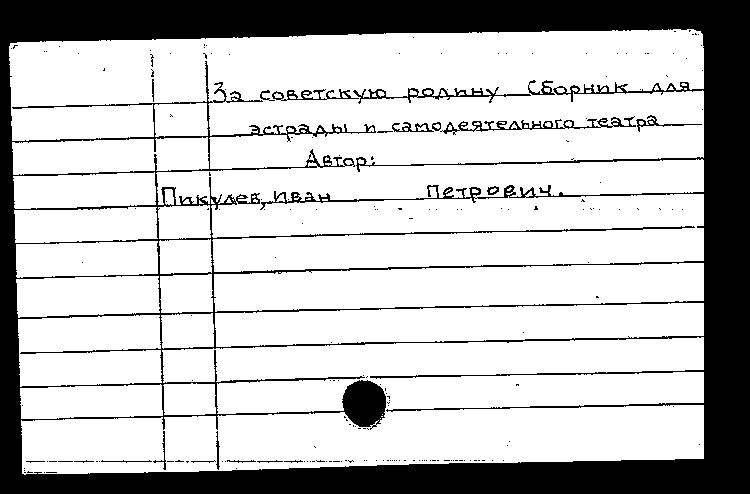 За советскую родину. Сборник для
эстрады и самодеятельного театра
Автор:
Пикулев, Иван Петрович.